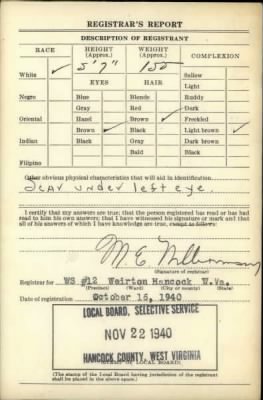 REGISTRAR'S REPORT
DESCRIPTION OF REGISTRANT
RACE HEIGHT (Approx.) WEIGHT (Approx.) COMPLEXION
White ✓ 5'7" 150 Sallow
EYES HAIR Light
Negro Blue Blonde Ruddy
Gray Red Dark
Oriental Hazel Brown ✓ Freckled
Brown ✓ Black Light brown ✓
Indian Black Gray Dark brown
Bald Black
Filipino
Other obvious physical characteristics that will aid in identification
Scar under left eye.
I certify that my answers are true; that the person registered has read or has had read to him his own answers; that I have witnessed his signature or mark and that all of his answers of which I have knowledge are true, except as follows:
M. E.
(Signature of registrar)
Registrar for WS #12 Weirton Hancock W.Va.
(Precinct) (Ward) (City or county) (State)
Date of registration October 16, 1940
LOCAL BOARD, SELECTIVE SERVICE
NOV 22 1940
HANCOCK COUNTY, WEST VIRGINIA
(The stamp of the Local Board having jurisdiction of the registrant
shall be placed in the above space.)